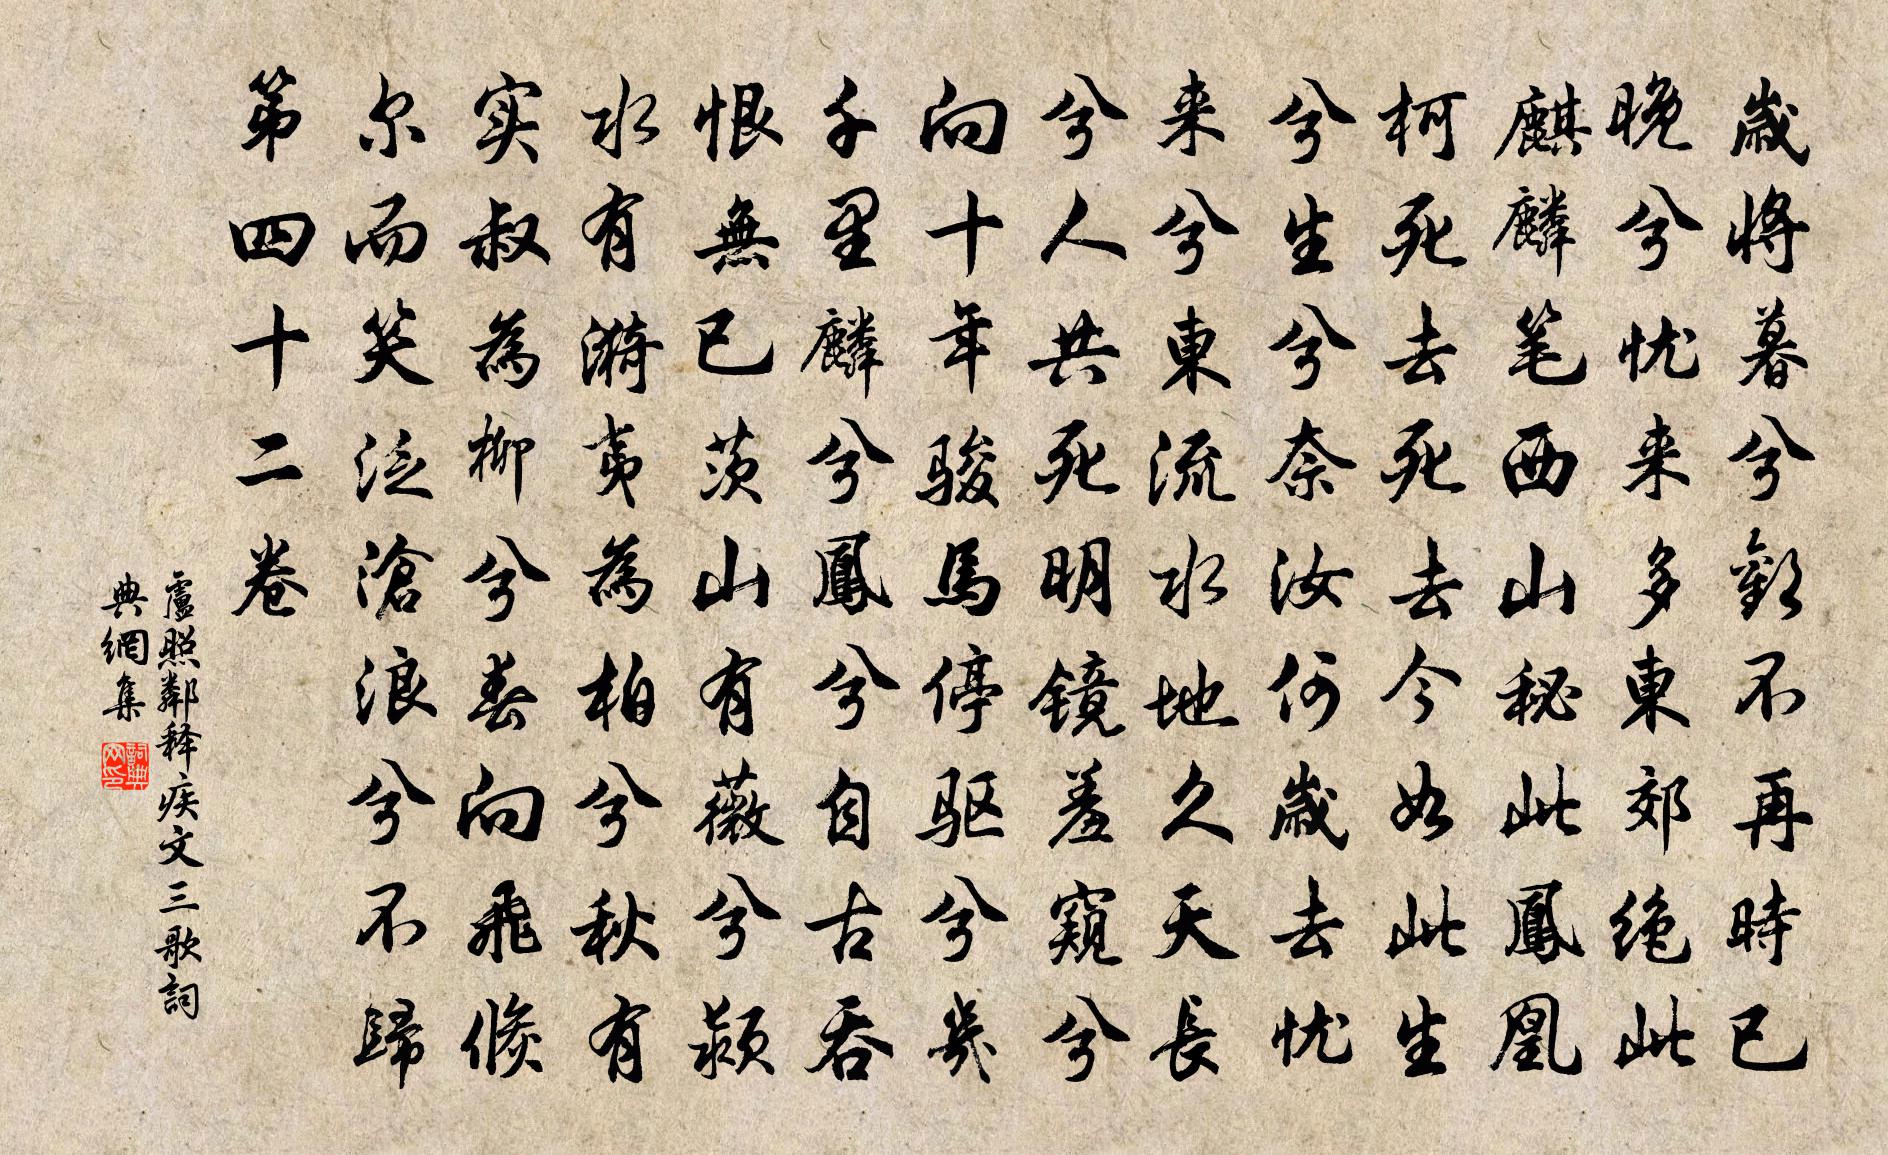 歲將暮兮歡不再時已
晚兮忧来多東郊绝此
麒麟笔西山秘此鳳凰
柯死去死去今如此生
兮生兮奈汝何歲去忧
来兮東流水地久天長
兮人共死明镜羞窺兮
向十年骏馬停驱兮幾
千里麟兮鳳兮自古吞
恨無已茨山有薇兮颍
水有漪夷為柏兮秋有
实叔為柳兮春向飛倏
尔而笑泛滄浪兮不歸
第四十二卷
盧照鄰释疾文三歌詞
典網集
詞典
网印